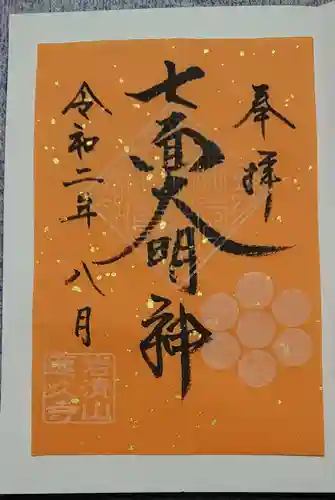 奉拝
七面大明神
令和二年八月